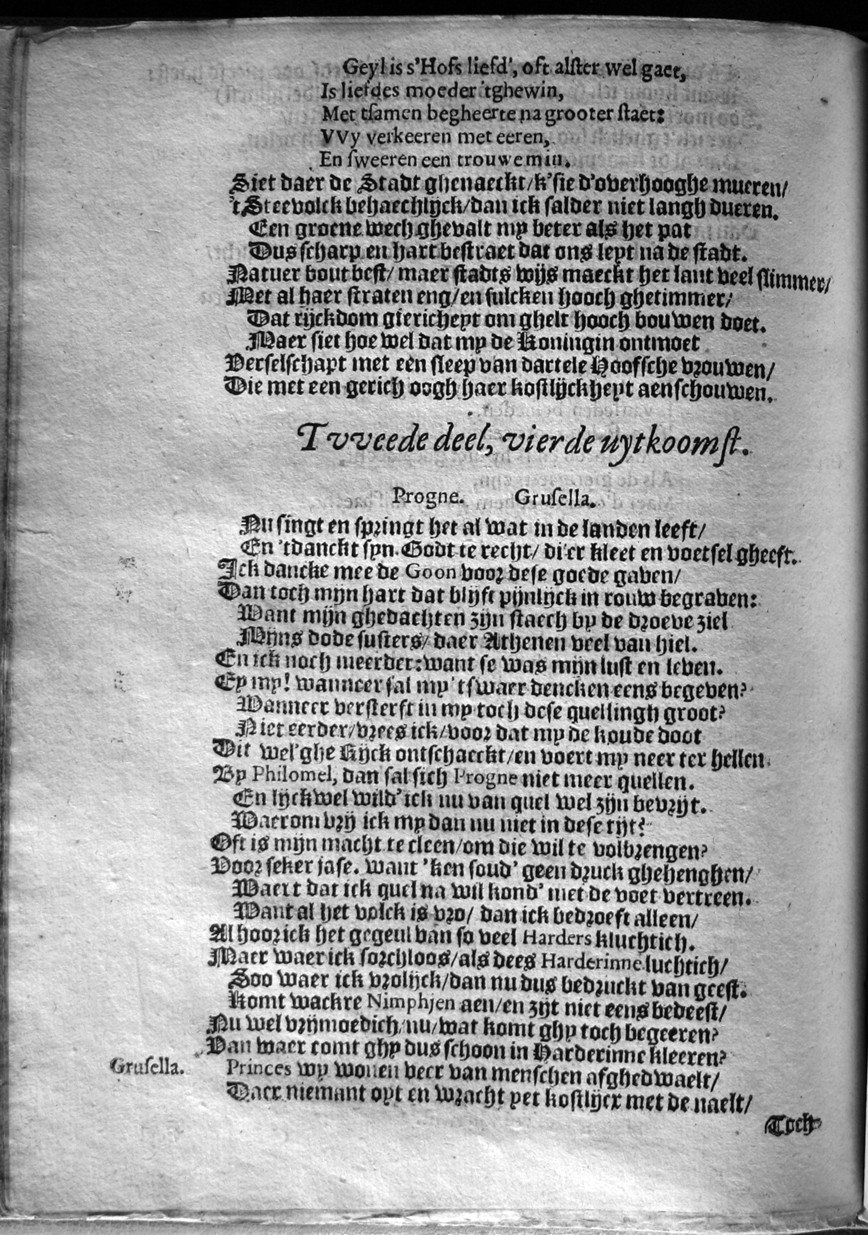 Geyl is s'Hofs liefd', oft alster wel gaet,
Is liefdes moeder 'tghewin,
Met tsamen begheerte na grooter staet:
VVy verkeeren met eeren,
En sweeren een trouwe min.
Siet daer de Stadt ghenaeckt/k'sie d'overhooghe mueren/
'tSteevolck behaechlijck/dan ick salder niet langh dueren.
Een groene wech ghevalt my beter als het pat
Dus scharp en hart bestraet dat ons leyt na de stadt.
Natuer bout best/ maer stadts wijs maeckt het lant veel slimmer/
Met al haer straten eng/en sulcken hooch ghetimmer/
Dat rijckdom giericheyt om ghelt hooch bouwen doet.
Maer siet hoe wel dat my de Koningin ontmoet
Verselschapt met een sleep van dartele Hoofsche vrouwen/
Die met een gerich oogh haer kostlijckheyt aenschouwen.
Tvveede deel, vierde uytkoomst.
Progne. Grusella.
Nu singt en springt het al wat in de landen leeft/
En 'tdanckt syn Godt te recht/ di'er kleet en voetsel gheeft.
Ick dancke mee de Goon voor dese goede gaven/
Dan toch mijn hart dat blijft pijnlijck in rouw begraven:
Want mijn ghedachten zijn staech by de droeve ziel
Mijns dode susters/ daer Athenen veel van hiel.
En ick noch meerder: want se was mijn lust en leven.
Ey my! wanneer sal my 't swaer dencken eens begeven?
Wanneer versterft in my toch dese quellingh groot?
Niet eerder/vrees ick/voor dat my de koude doot
Dit wel'ghe Rijck ontschaeckt/en voert my neer ter hellen
By Philomel, dan sal sich Progne niet meer quellen.
En lijckwel wild' ick nu van quel wel zijn bevrijt.
Waerom vrij ick my dan nu niet in dese tijt?
Oft is mijn macht te cleen/om die wil te volbrengen?
Voor seker jase. want 'ken soud' geen druck ghehenghen/
Waert dat ick quel na wil kond' met de voet vertreen.
Want al het volck is vro/ dan ick bedroeft alleen/
Al hoor ick het gegeul van so veel Harders kluchtich.
Maer waer ick sorchloos/als dees Harderinne luchtich/
Soo waer ick vrolijck/dan nu dus bedruckt van geest.
Komt wackre Nimphjen aen/en zijt niet eens bedeest/
Nu wel vrijmoedich/nu/wat komt ghy toch begeeren?
Van waer comt ghy dus schoon in Harderinne kleeren?
Grusella. Princes wy wonen veer van menschen afghedwaelt/
Daer niemant oyt en wracht yet kostlijcx met de naelt/
Toch